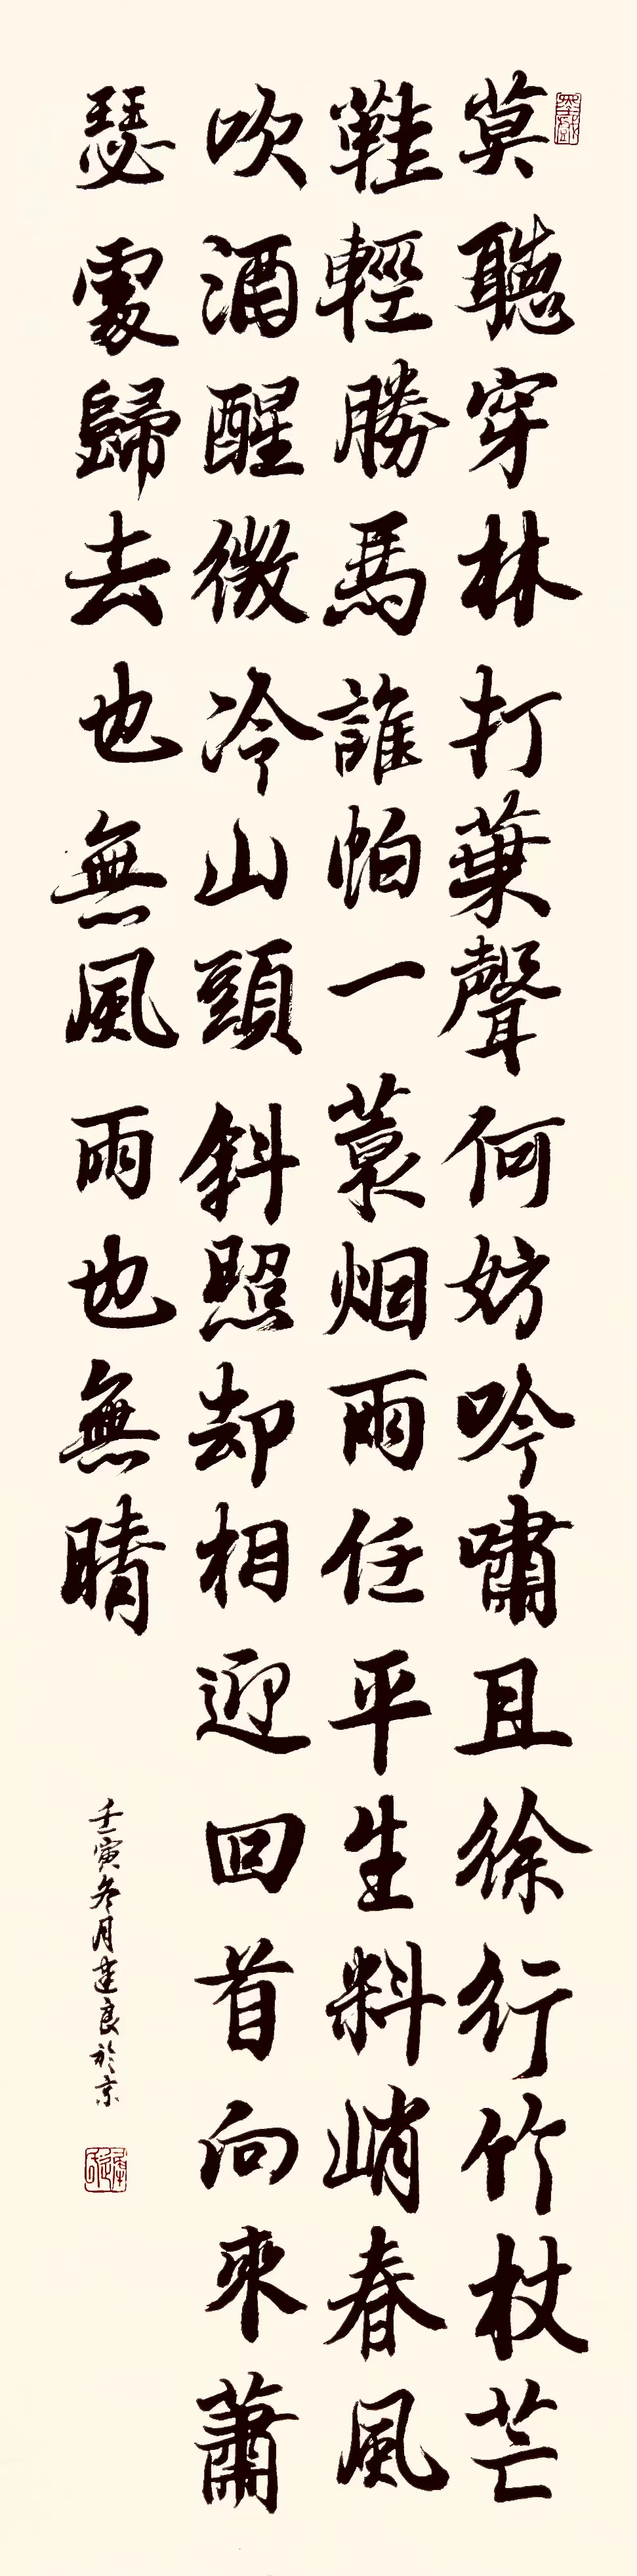 莫聽穿林打葉聲何妨吟嘯且徐行竹杖芒
鞋輕勝馬誰怕一蓑烟雨任平生料峭春風
吹酒醒微冷山頭斜照却相迎回首向來蕭
瑟處歸去也無風雨也無晴
壬寅冬月建良於京